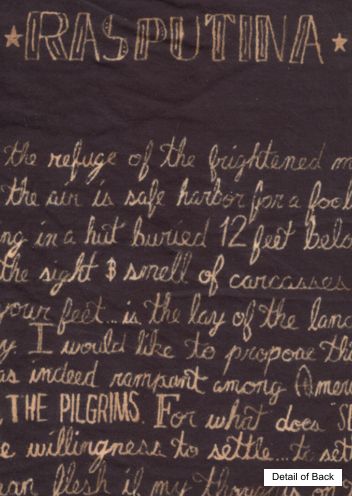 ★RASPUTINA★
the refuge of the frightened m
the air is safe harbor for a fool
ng in a hut buried 12 feet belo
the sight & smell of carcasses
your feet... is the lay of the lan
y. I would like to propose thi
as indeed rampant among Amer
THE PILGRIMS. For what does S
e willingness to settle... to set
an flesh if my thou
Detail of Back